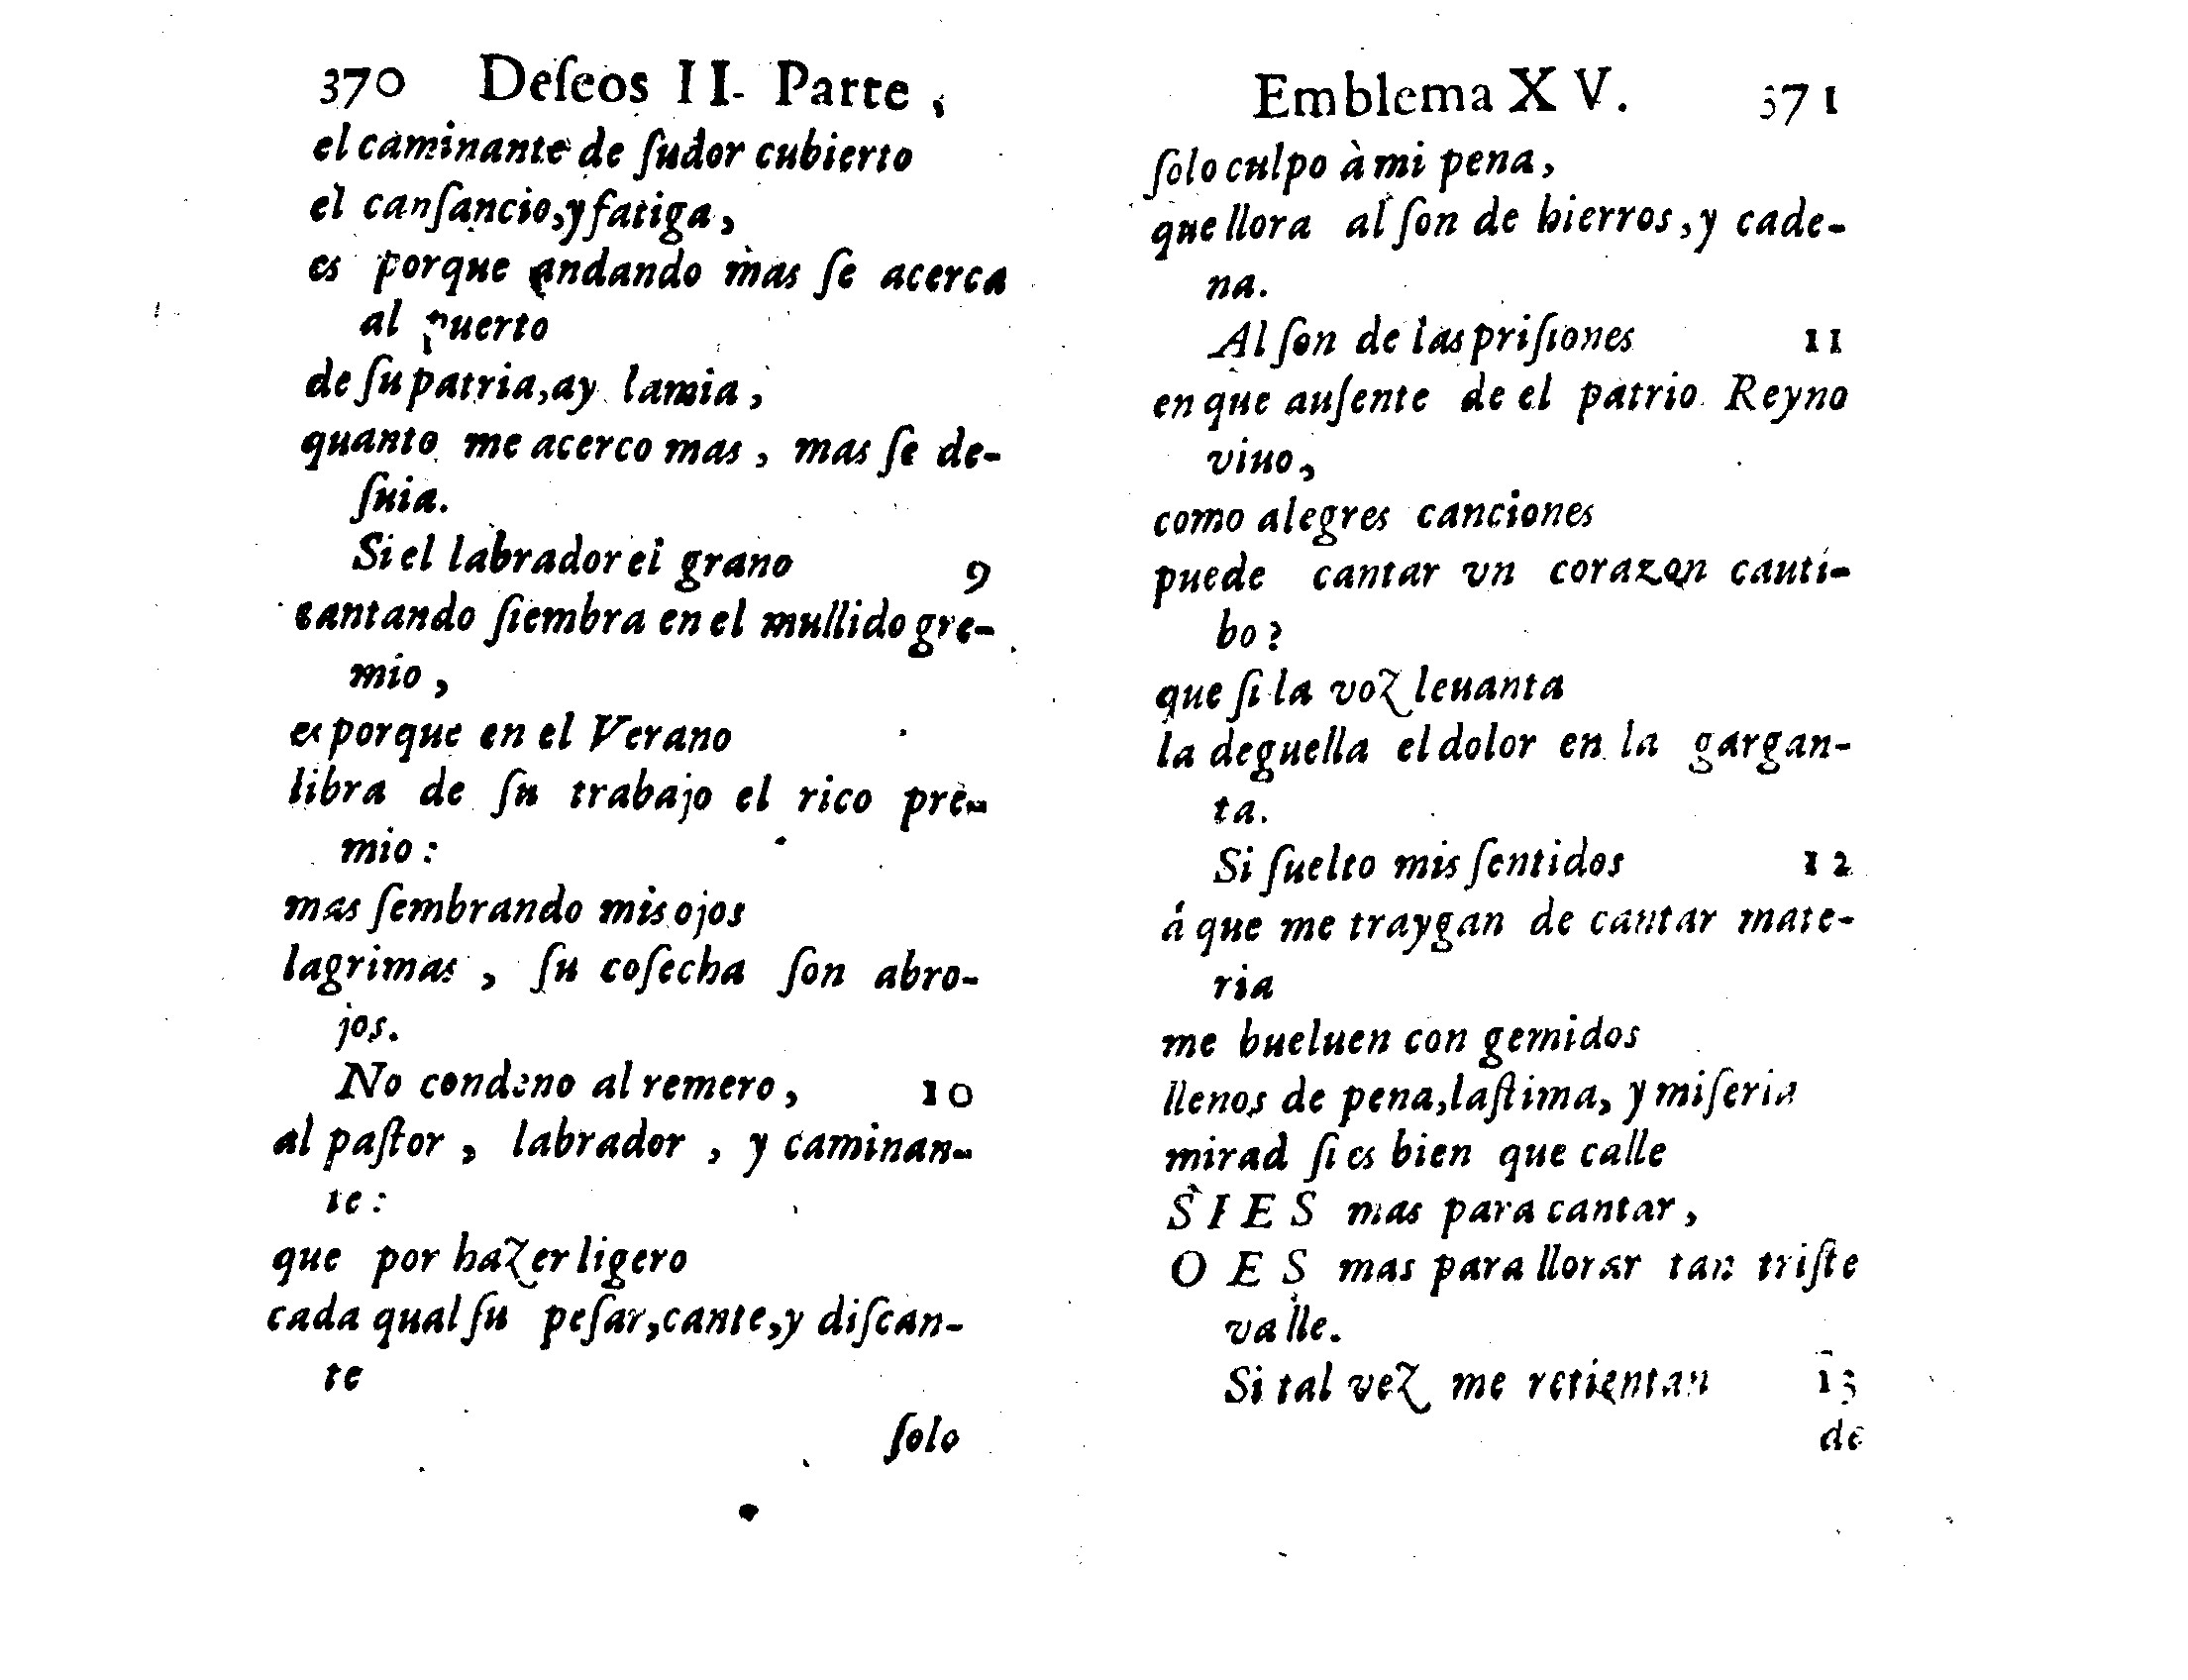 370 Deſeos II. Parte,
el caminante de ſudor cubierto
el canſancio, y fatiga,
es porque andando mas ſe acerca
al puerto
de ſu patria, ay la mia,
quanto me acerco mas, mas ſe de-
ſuia.
Si el labrador el grano 9
cantando ſiembra en el mullido gre-
mio,
es porque en el Verano
libra de ſu trabajo el rico pre-
mio:
mas ſembrando mis ojos
lagrimas, ſu coſecha ſon abro-
jos.
No condeno al remero, 10
al paſtor, labrador, y caminan-
te:
que por hazer ligero
cada qual ſu peſar, cante, y diſcan-
te
ſolo
Emblema XV. 371
ſolo culpo à mi pena,
que llora al ſon de hierros, y cade-
na.
Al ſon de las priſiones 11
en que auſente de el patrio Reyno
viuo,
como alegres canciones
puede cantar vn corazon cauti-
bo?
que ſi la voz leuanta
la deguella el dolor en la gargan-
ta.
Si ſuelto mis ſentidos 12
á que me traygan de cantar mate-
ria
me bueluen con gemidos
llenos de pena, laſtima, y miſeria
mirad ſi es bien que calle
SIES mas para cantar,
O ES mas para llorar tan triſte
valle.
Si tal vez me retientan 13
de